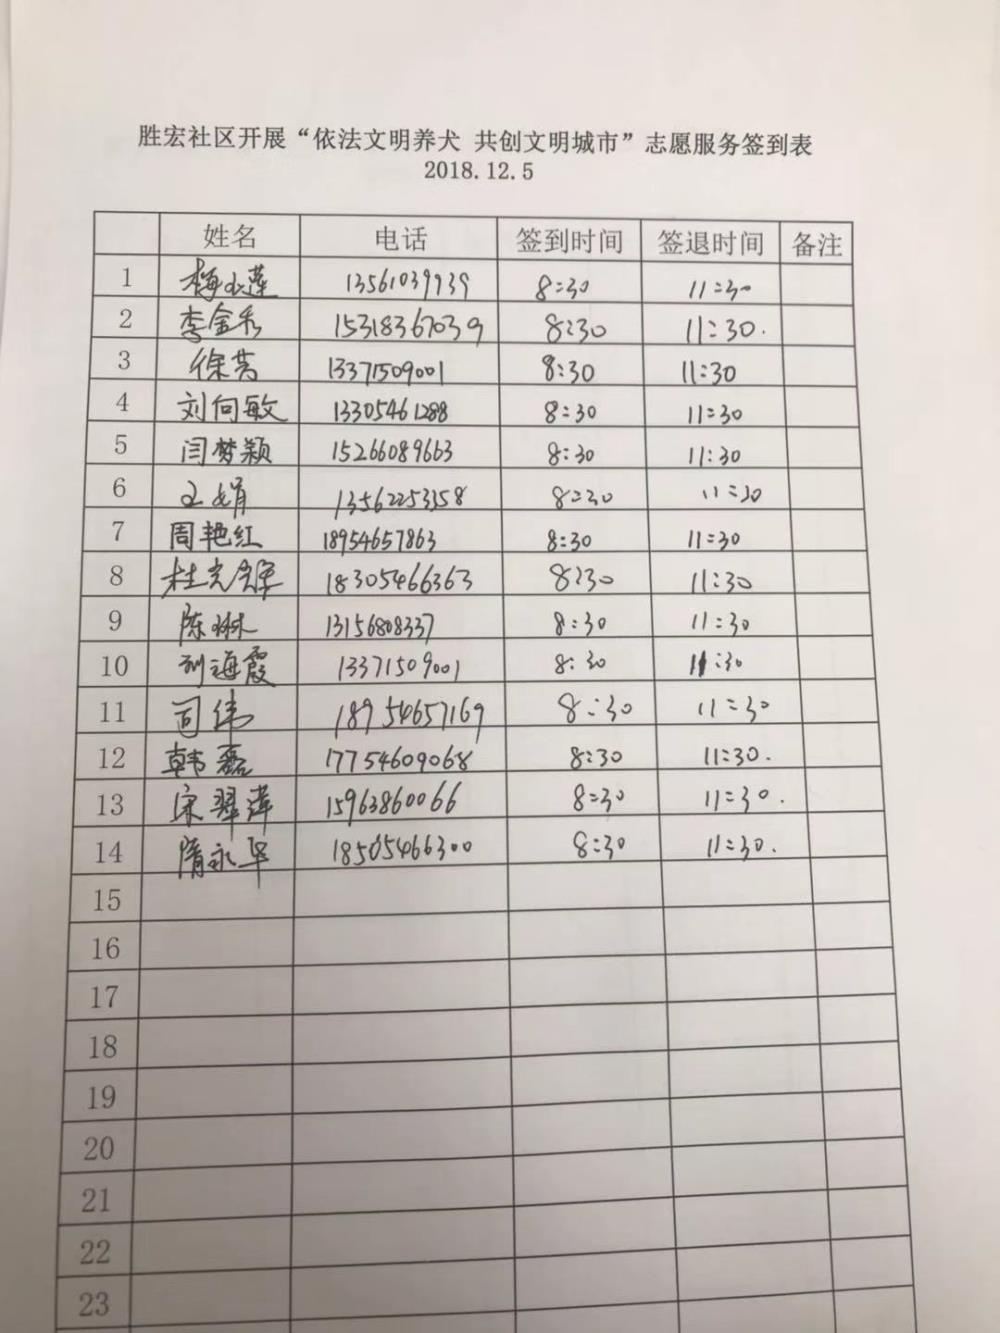 胜宏社区开展“依法文明养犬 共创文明城市”志愿服务签到表
2018.12.5
姓名 电话 签到时间 签退时间 备注
1 梅小莲 13561039939 8:30 11:30
2 李金秀 15318367039 8:30 11:30.
3 徐芸 13371509001 8:30 11:30
4 刘向敏 13305461288 8:30 11:30
5 闫梦颖 15266089663 8:30 11:30
6 王娟 13562253158 8:30 11:30
7 周艳红 18954657863 8:30 11:30
8 杜 18305466363 8:30 11:30
9 陈琳 13156808337 8:30 11:30
10 刘海霞 13371509001 8:30 11:30
11 司伟 18954657169 8:30 11:30
12 韩磊 17754609068 8:30 11:30.
13 宋翠萍 15963860066 8:30 11:30.
14 隋永华 18505466300 8:30 11:30.
15
16
17
18
19
20
21
22
23